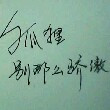 狐狸
别那么骄傲